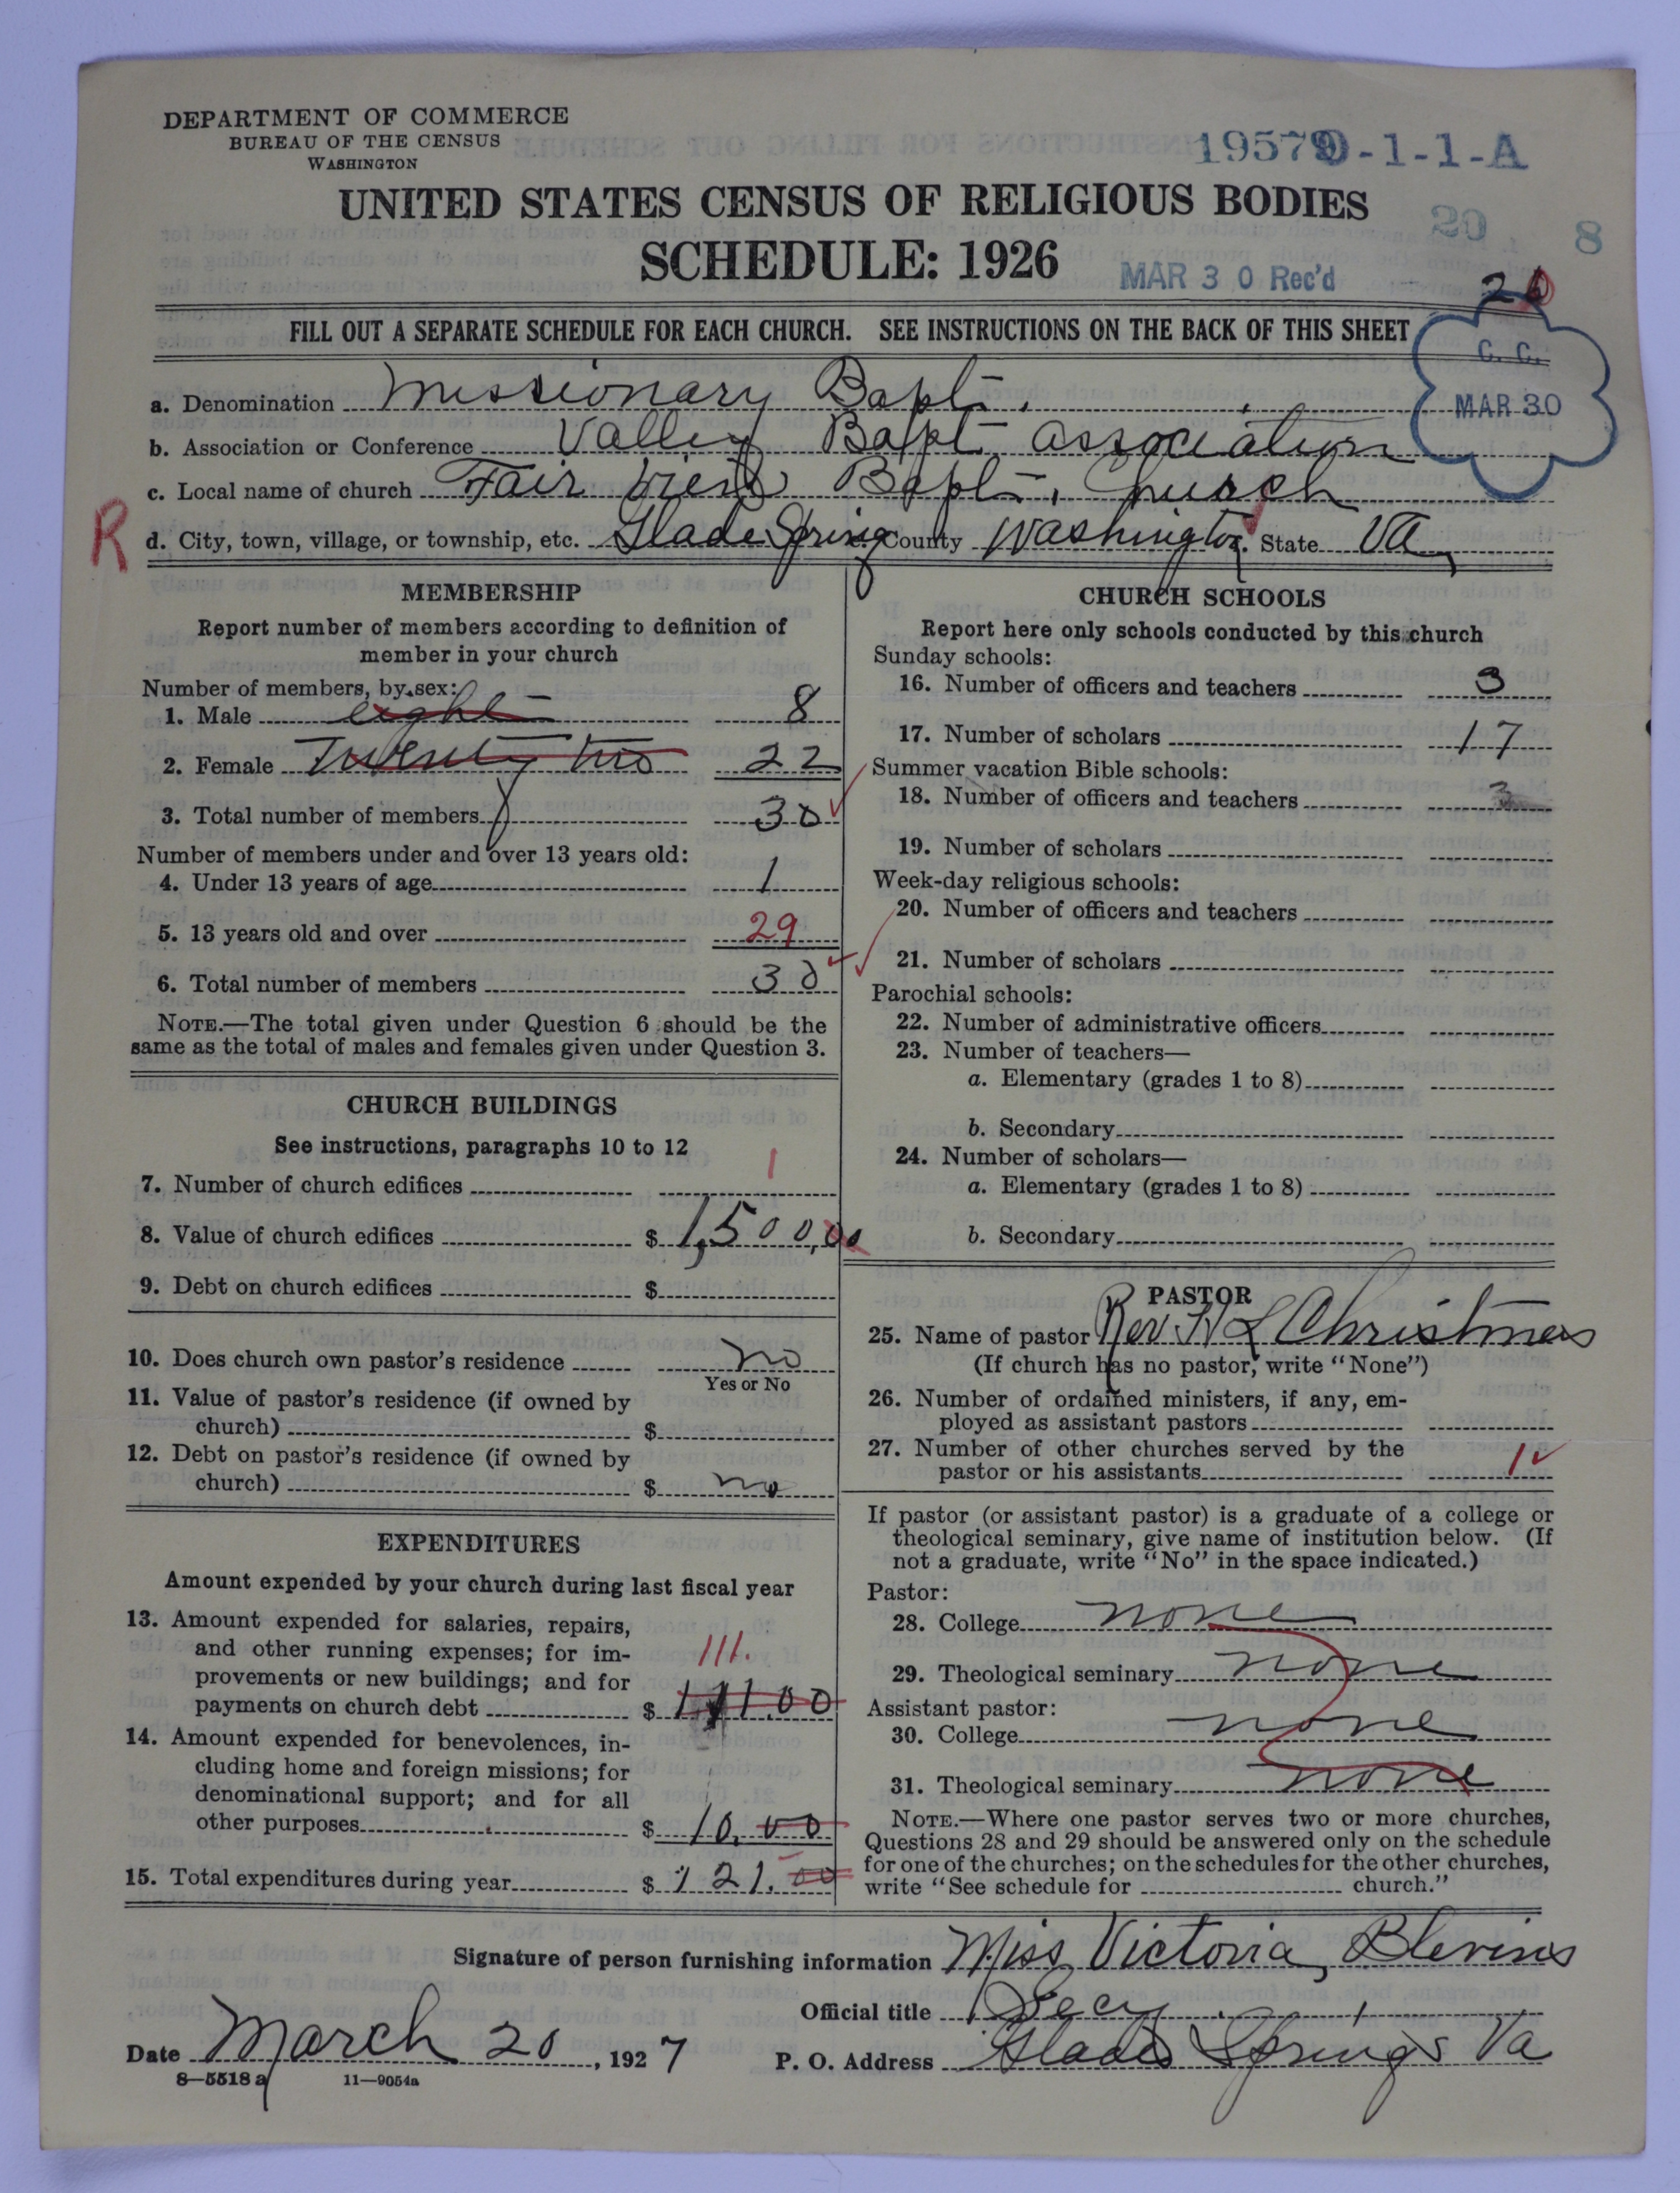 DEPARTMENT OF COMMERCE
BUREAU OF THE CENSUS
WASHINGTON
19579 0-1-1-A
UNITED STATES CENSUS OF RELIGIOUS BODIES
20 8
SCHEDULE: 1926
MAR 30 Rec'd
FILL OUT A SEPARATE SCHEDULE FOR EACH CHURCH. SEE INSTRUCTIONS ON THE BACK OF THIS SHEET
C. C.
MAR 30
a. Denomination Missionary Bapt.
b. Association or Conference Valley Bapt. Association
c. Local name of church Fair View Bapt. Church
R
d. City, town, village, or township, etc. Glade Spring County Washington State Va
MEMBERSHIP
Report number of members according to definition of
member in your church
Number of members, by sex:
1. Male eight 8
2. Female Twenty two 22
3. Total number of members 30
Number of members under and over 13 years old:
4. Under 13 years of age 1
5. 13 years old and over 29
6. Total number of members 30
NOTE.—The total given under Question 6 should be the
same as the total of males and females given under Question 3.
CHURCH BUILDINGS
See instructions, paragraphs 10 to 12
7. Number of church edifices 1
8. Value of church edifices $ 1,500,00
9. Debt on church edifices $
10. Does church own pastor's residence no
Yes or No
11. Value of pastor's residence (if owned by
church) $
12. Debt on pastor's residence (if owned by
church) $ no
EXPENDITURES
Amount expended by your church during last fiscal year
13. Amount expended for salaries, repairs,
and other running expenses; for im-
provements or new buildings; and for
111.
payments on church debt $ 111.00
14. Amount expended for benevolences, in-
cluding home and foreign missions; for
denominational support; and for all
other purposes $ 10.00
15. Total expenditures during year $ 121.00
CHURCH SCHOOLS
Report here only schools conducted by this church
Sunday schools:
16. Number of officers and teachers 3
17. Number of scholars 17
Summer vacation Bible schools:
18. Number of officers and teachers 3
19. Number of scholars
Week-day religious schools:
20. Number of officers and teachers
21. Number of scholars
Parochial schools:
22. Number of administrative officers
23. Number of teachers—
a. Elementary (grades 1 to 8)
b. Secondary
24. Number of scholars—
a. Elementary (grades 1 to 8)
b. Secondary
PASTOR
25. Name of pastor Rev. Christmas
(If church has no pastor, write "None")
26. Number of ordained ministers, if any, em-
ployed as assistant pastors
27. Number of other churches served by the
pastor or his assistants 1
If pastor (or assistant pastor) is a graduate of a college or
theological seminary, give name of institution below. (If
not a graduate, write "No" in the space indicated.)
Pastor:
28. College none
29. Theological seminary none
Assistant pastor:
30. College none
31. Theological seminary none
NOTE.—Where one pastor serves two or more churches,
Questions 28 and 29 should be answered only on the schedule
for one of the churches; on the schedules for the other churches,
write "See schedule for church."
Signature of person furnishing information Miss Victoria Blevins
Official title Secy.
Date March 20, 1927 P. O. Address Glade Springs Va
8—5518 a 11—9054a